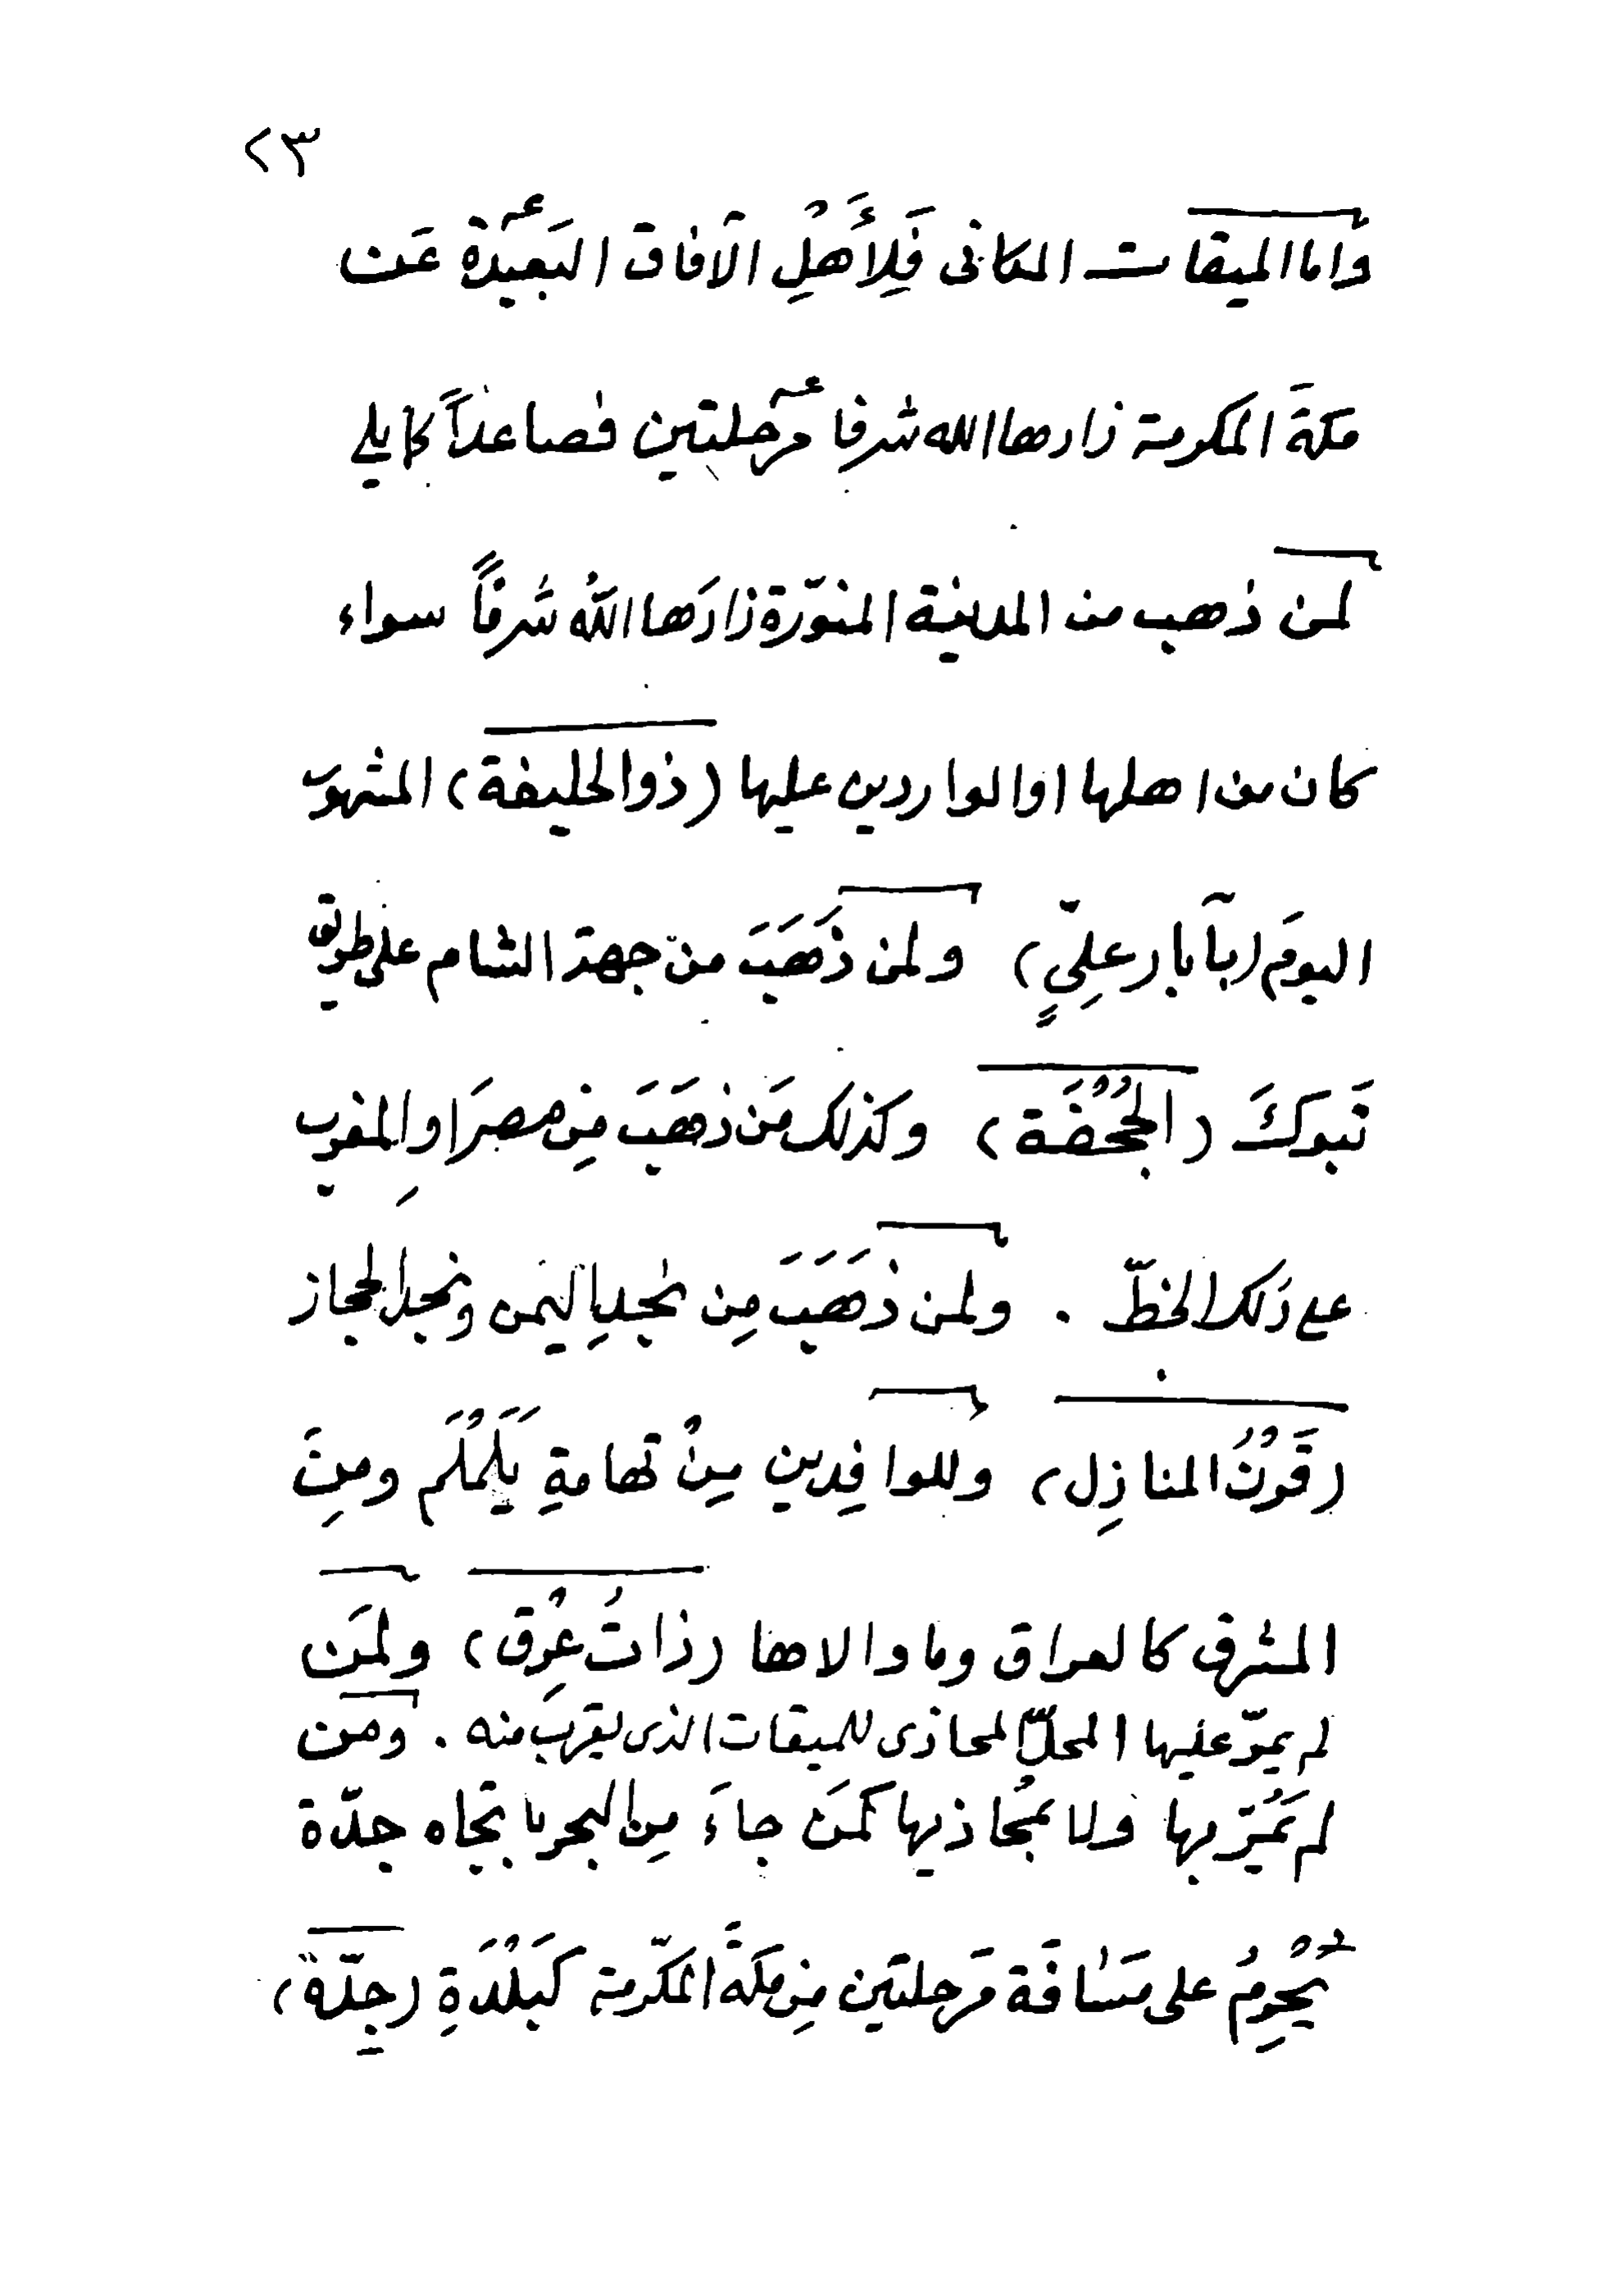 ٢٣
وَاما الميقات المكانى فَلِأَهْلِ الآفاق البَعيدَة عَن
مكةَ المكرمة زادها الله شرفا مَرحَلتين فصاعداً كما يلي
لمن ذهب من المدينة المنوّرة زادَها اللهُ شَرفاً سواء
كان من اهلها او الواردين عليها (ذو الحليفة) المشهور
اليومَ (بآبار علِيٍّ) ولمن ذَهَبَ من جهة الشام على طريق
تَبوكَ (الجُحْفَة) وكذلك مَن ذهَبَ مِن مصرَ او المغربِ
على ذلك الخطّ . ولمن ذهَبَ مِن نجدِ اليَمن ونجد الحجاز
(قَرْنُ المنازِل) وللوافِدين مِنْ تهامةِ يَلَمْلَم ومِنَ
المشرق كالعراق وما والاها (ذاتُ عِرْق) ولمَن
لم يمرّ عليها المحلّ المحاذى للميقات الذى يقرب منه . ومن
لم يَمُرّ بها ولا بمُحاذيها كمَن جاءَ مِن البحر باتجاه جدّة
يُحْرِمُ على مَسافَة مَرحلتَين مِن مكةَ المكرّمة كَبَلْدَةِ (جِدّة)